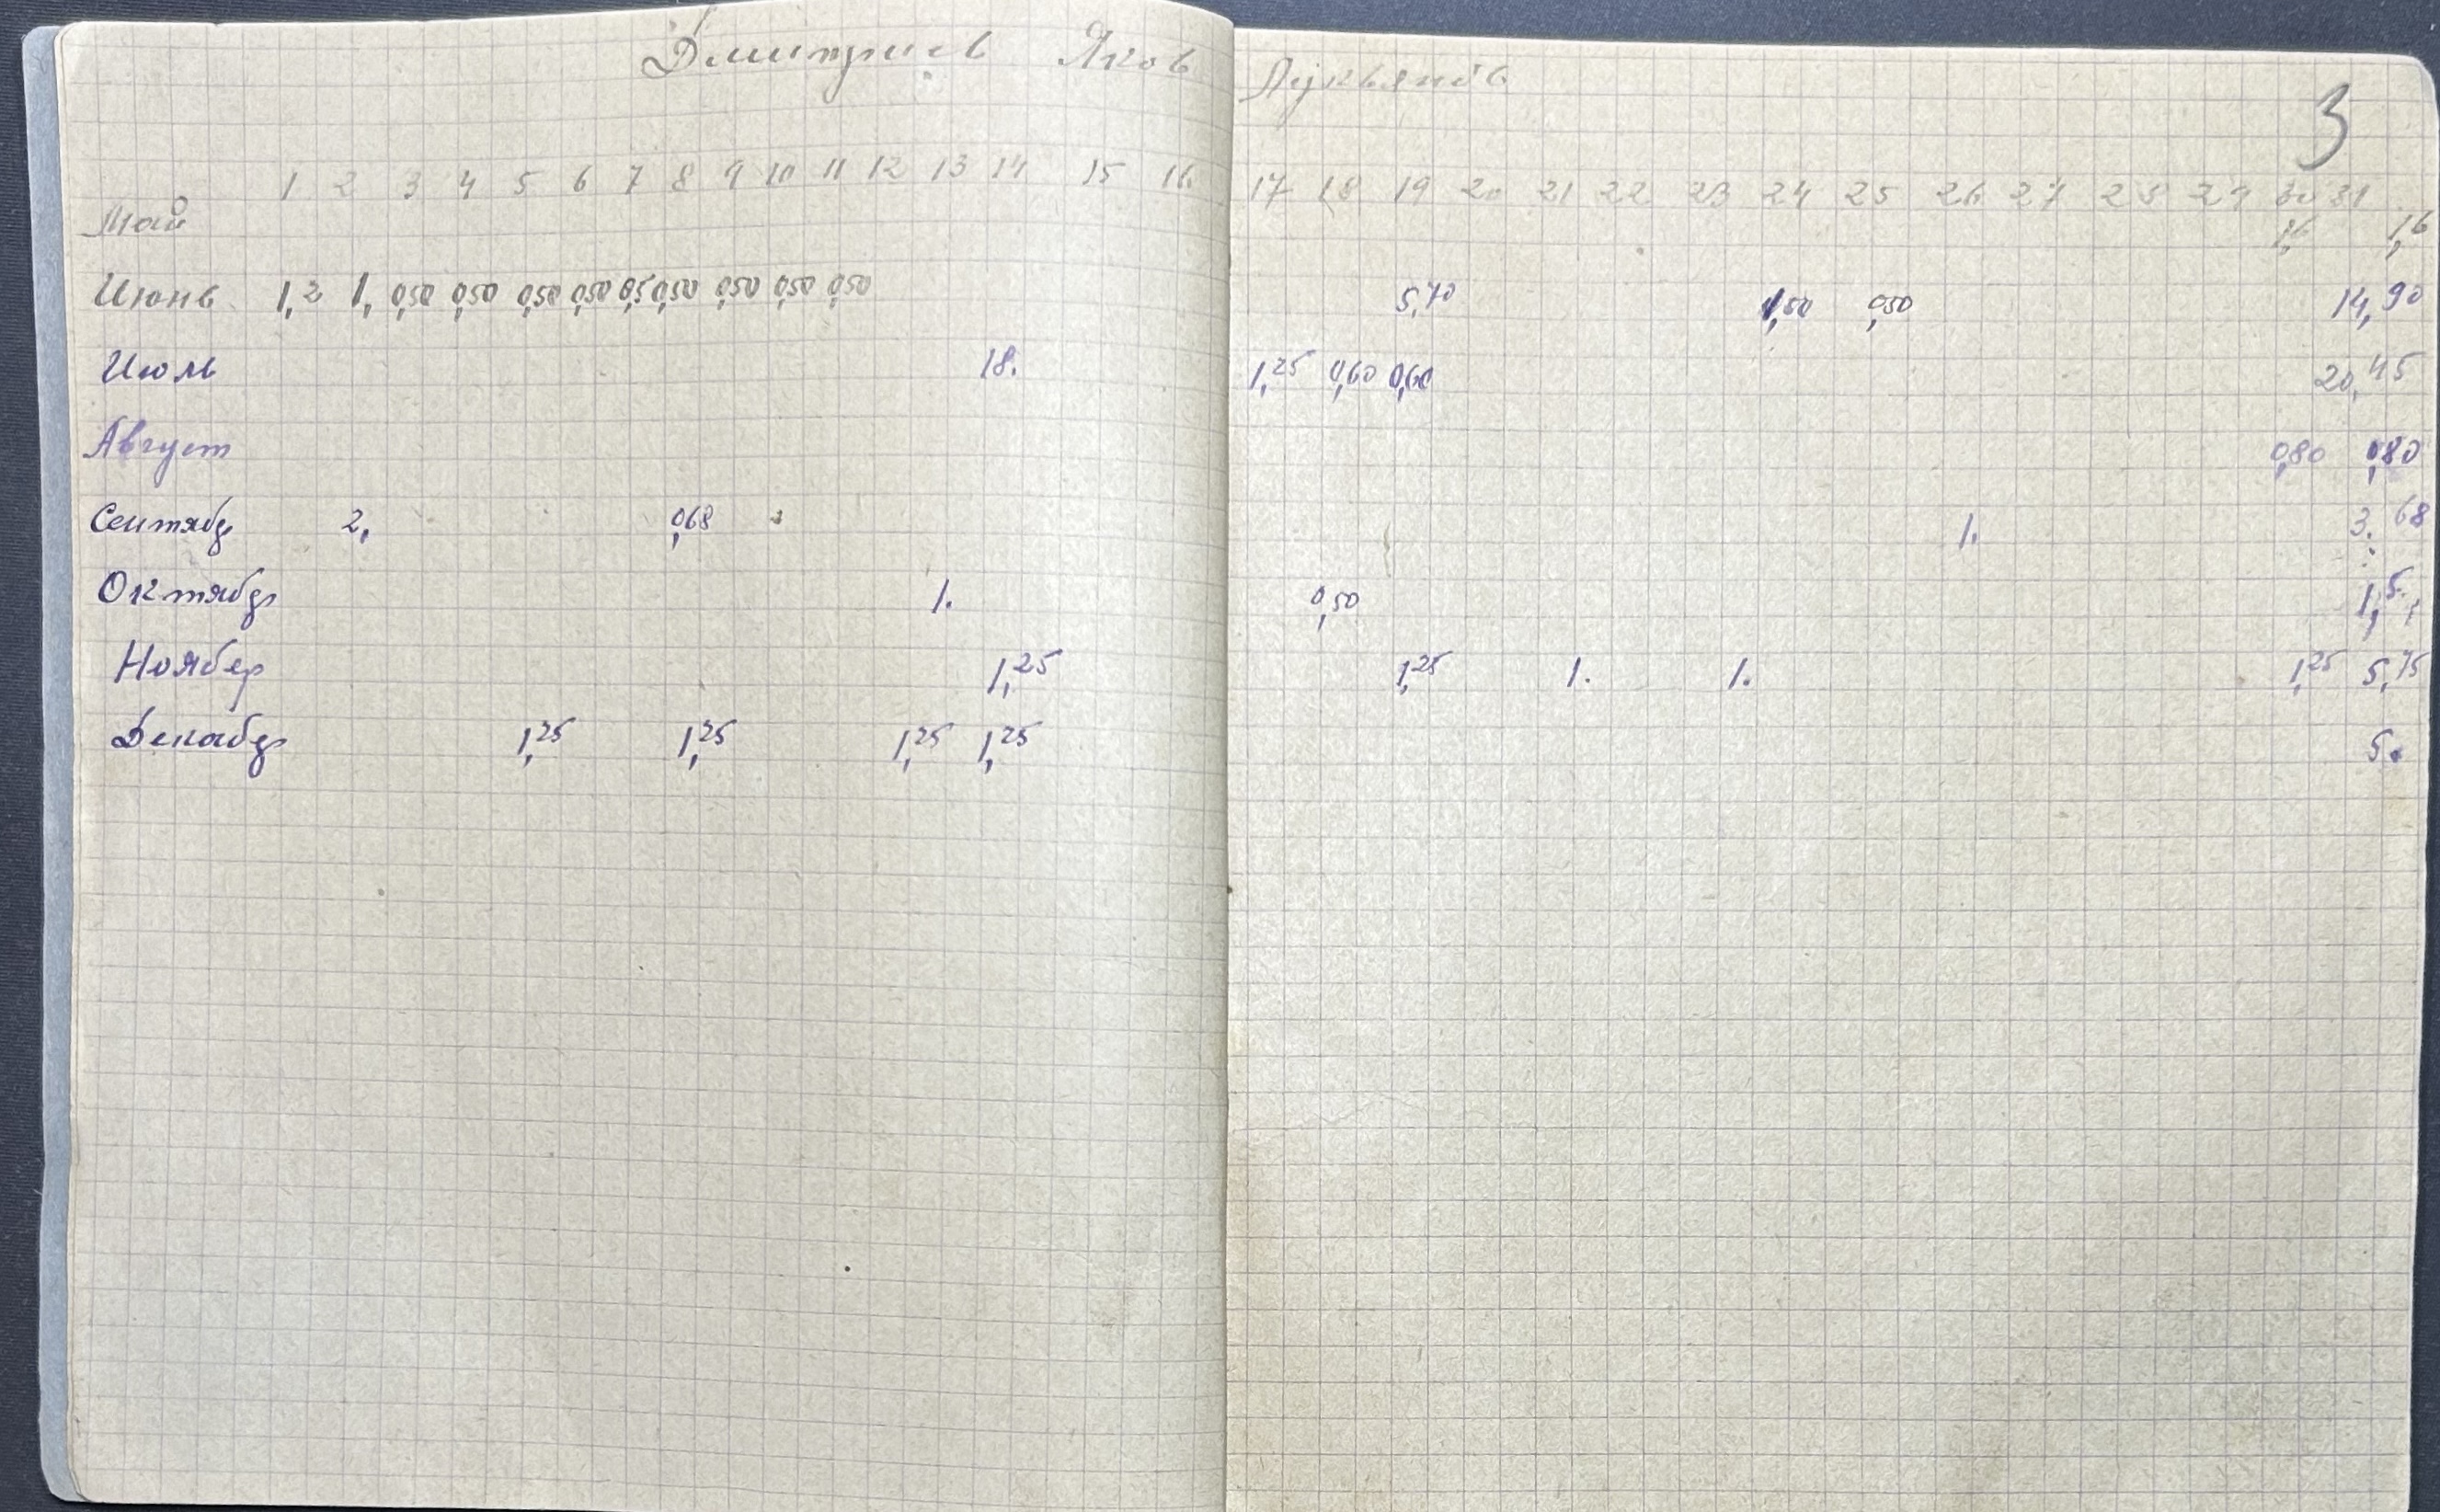 Дмитриев Яков Лукьянов
3
1 2 3 4 5 6 7 8 9 10 11 12 13 14 15 16. 17 18 19 20 21 22 23 24 25 26 27 28 29 30 31
Май 1,6 1,6
Июнь 1,2 1, 0,50 0,50 0,50 0,50 0,5 0,50 0,50 0,50 0,50 5,70 1,50 0,50 14,90
Июль 18. 1,25 0,60 0,60 20,45
Август 0,80 0,80
Сентябр 2, 0,68 1. 3.68
Октябр 1. 0,50 1,5
Ноябер 1,25 1,25 1. 1. 1,25 5,75
Декабр 1,25 1,25 1,25 1,25 5.